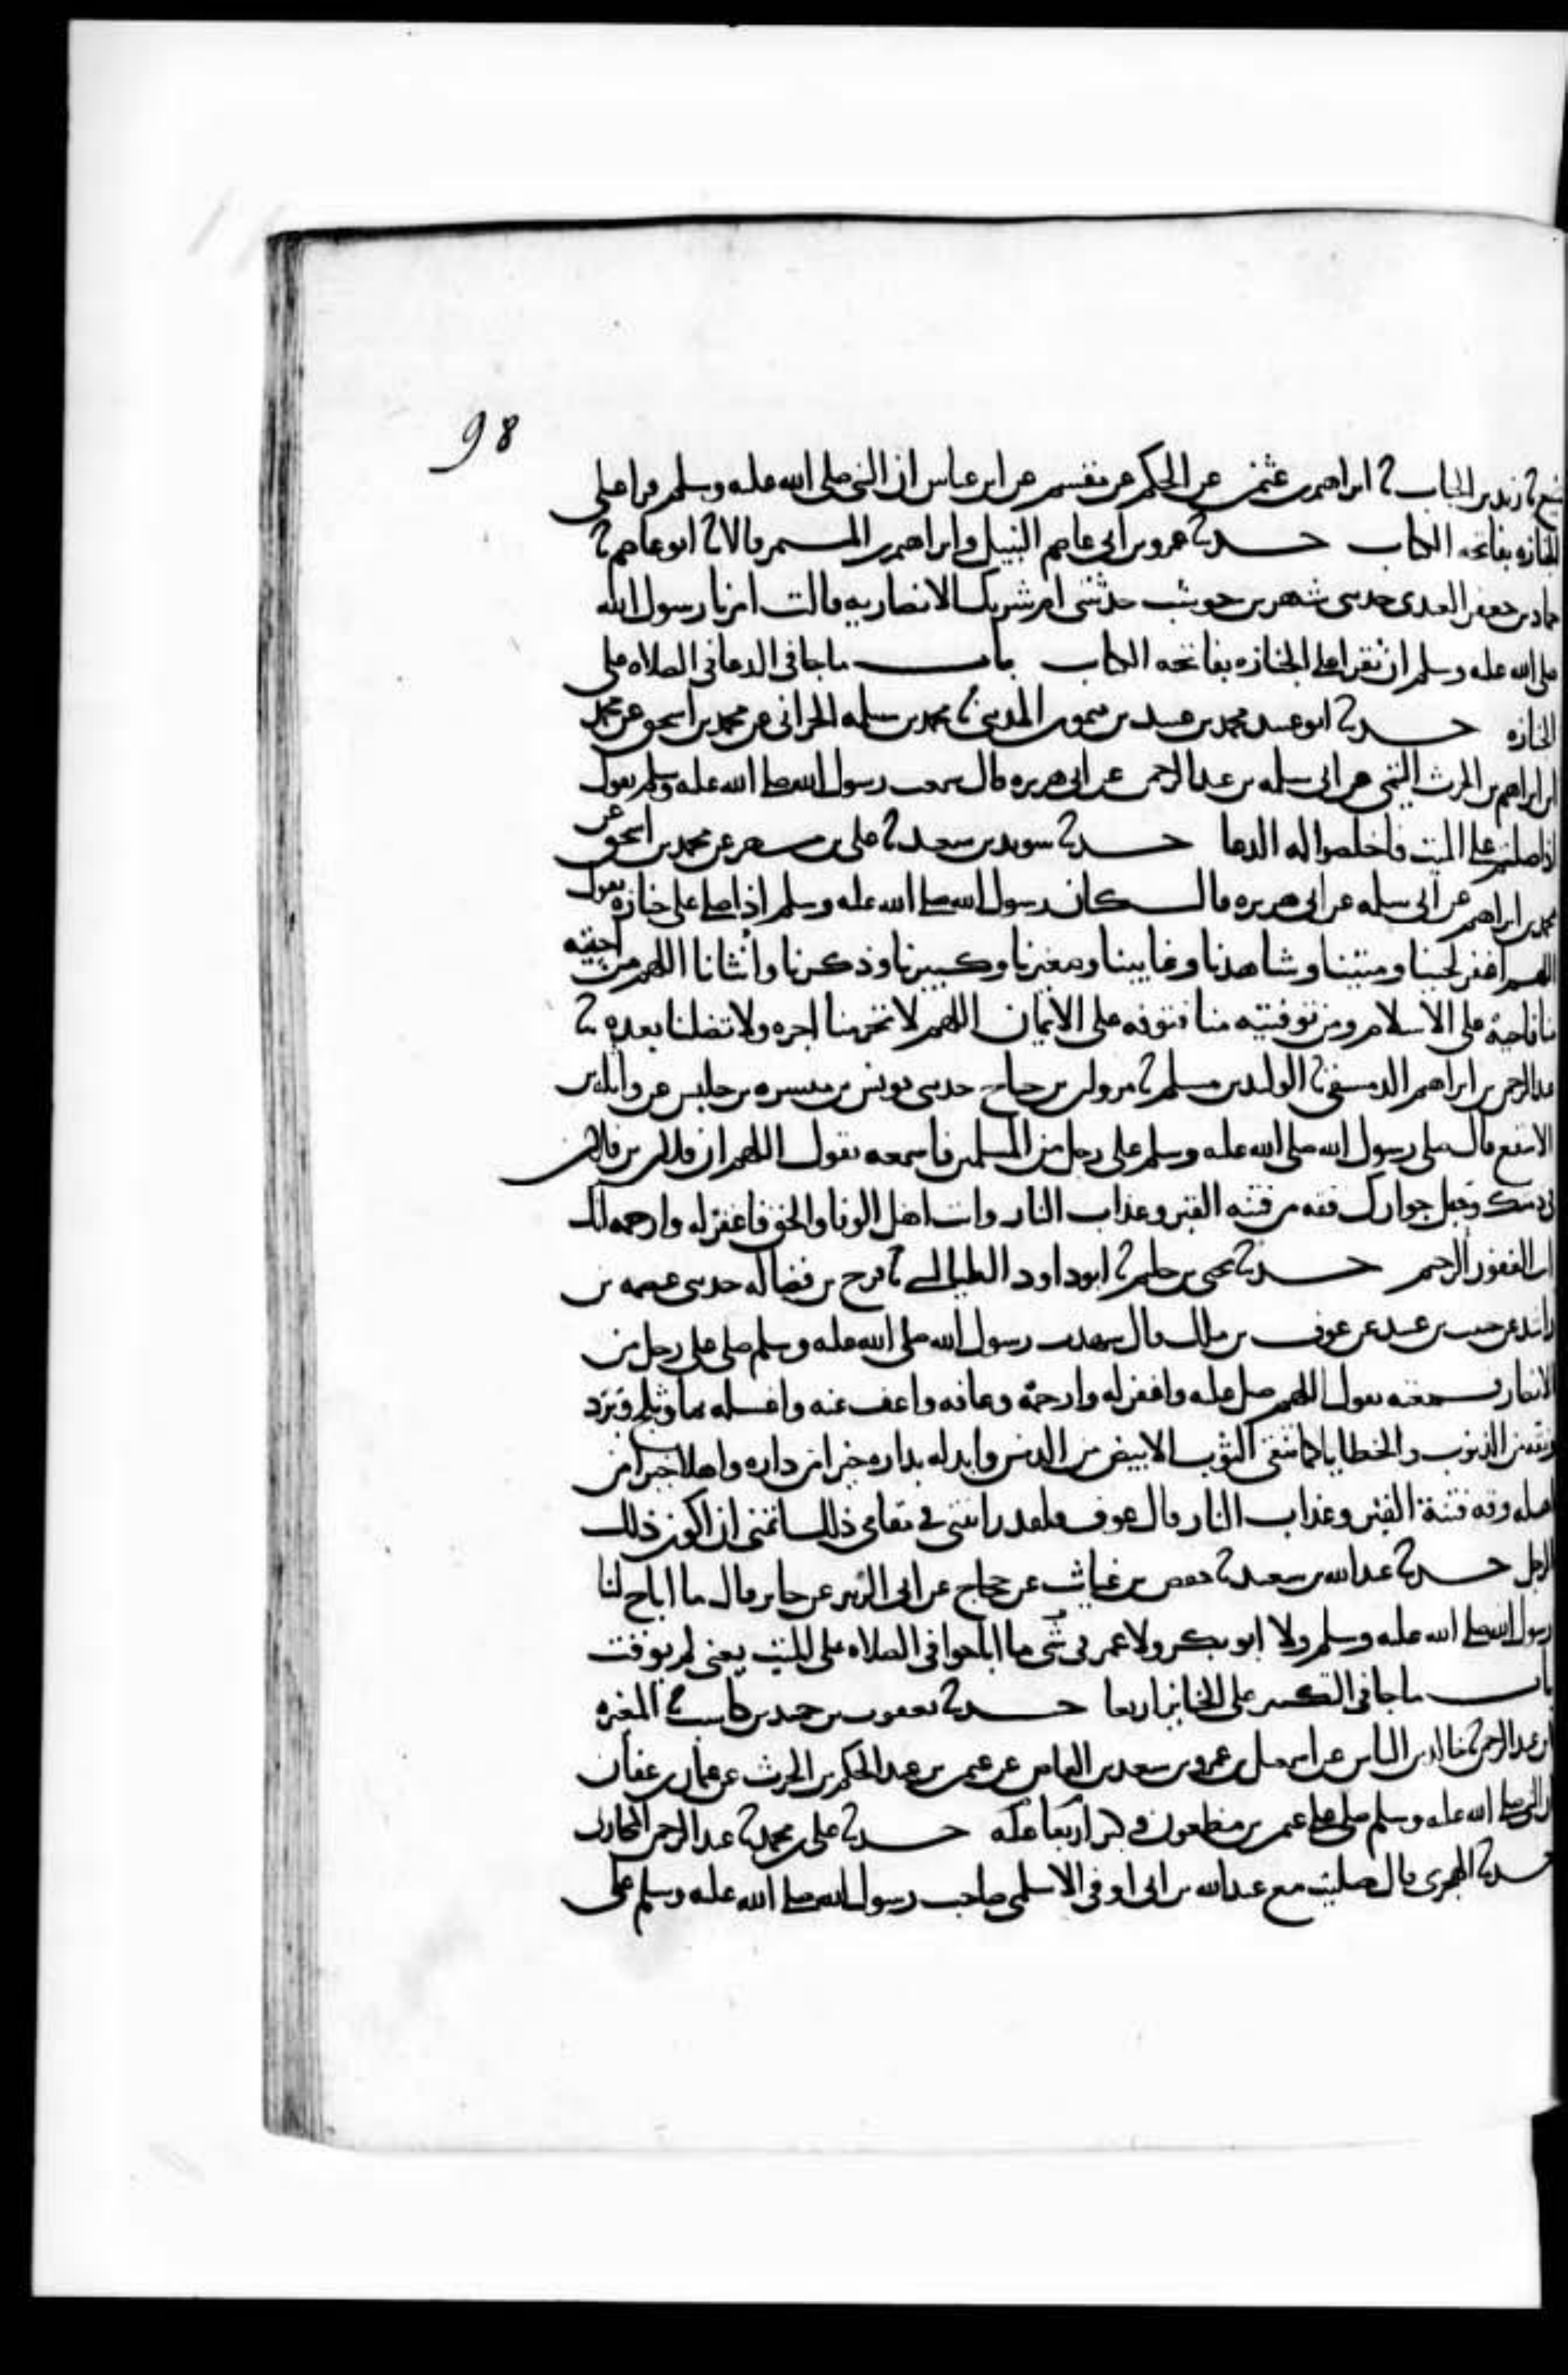 98
منيع ثنا زيد بن الحباب ثنا ابراهيم بن عثمن عن الحكم عن مقسم عن ابن عباس ان النبي صلى الله عليه وسلم قرا على
الجنازه بفاتحه الكتاب حدثنا عمرو بن ابي عاصم النبيل وابراهيم بن المستمر قالا ثنا ابو عاصم ثنا
حماد بن جعفر العبدي حدثني شهر بن حوشب حدثتني ام شريك الانصاريه قالت امرنا رسول الله
صلى الله عليه وسلم ان نقرا على الجنازه بفاتحه الكتاب باب ما جا في الدعا في الصلاه على
الجنازه حدثنا ابو عبيد محمد بن عبيد بن ميمون المديني ثنا محمد بن سلمه الحراني عن محمد بن اسحق عن محمد
ابن ابراهيم بن الحرث التيمي عن ابي سلمه بن عبد الرحمن عن ابي هريره قال سمعت رسول الله صلى الله عليه وسلم يقول
اذا صليتم على الميت فاخلصوا له الدعا حدثنا سويد بن سعيد ثنا علي بن مسهر عن محمد بن اسحق عن
محمد بن ابراهيم عن ابي سلمه عن ابي هريره قال كان رسول الله صلى الله عليه وسلم اذا صلى على جنازه يقول
اللهم اغفر لحينا وميتنا وشاهدنا وغايبنا وصغيرنا وكبيرنا وذكرنا وانثانا اللهم من احييته
منا فاحيه على الاسلام ومن توفيته منا فتوفه على الايمان اللهم لا تحرمنا اجره ولا تضلنا بعده ثنا
عبد الرحمن بن ابراهيم الدمشقي ثنا الوليد بن مسلم ثنا مروان بن جناح حدثني يونس بن ميسره بن حلبس عن واثله بن
الاسقع قال صلى رسول الله صلى الله عليه وسلم على رجل من المسلمين فاسمعه يقول اللهم ان فلان بن فلان
في ذمتك وحبل جوارك فقه من فتنه القبر وعذاب النار وانت اهل الوفا والحق فاغفر له وارحمه انك
انت الغفور الرحيم حدثنا يحيى بن حكيم ثنا ابو داود الطيالسي ثنا فرج بن فضاله حدثني عصمه بن
راشد عن حبيب بن عبيد عن عوف بن ملك قال شهدت رسول الله صلى الله عليه وسلم صلى على رجل من
الانصار فسمعته يقول اللهم صل عليه واغفر له وارحمه وعافه واعف عنه واغسله بما وثلج وبرد
ونقه من الذنوب والخطايا كما ينقى الثوب الابيض من الدنس وابدله بداره خيرا من داره واهلا خيرا من
اهله وقه فتنة القبر وعذاب النار قال عوف فلقد رايتني في مقامي ذلك اتمنى ان اكون ذلك
الرجل حدثنا عبد الله بن سعيد ثنا حفص بن غياث عن حجاج عن ابي الزبير عن جابر قال ما اباح لنا
رسول الله صلى الله عليه وسلم ولا ابو بكر ولا عمر في شي ما اباحوا في الصلاه على الميت يعني لم يوقت
باب ما جا في التكبير على الجنايز اربعا حدثنا يعقوب بن حميد بن كاسب ثنا المغيره
ابن عبد الرحمن ثنا خالد بن الياس عن اسمعيل بن عمرو بن سعيد بن العاص عن عثمن بن عبد الله بن الحكم بن الحرث عن عثمان بن عفان
ان النبي صلى الله عليه وسلم صلى على عثمن بن مظعون فكبر اربعا عليه حدثنا علي بن محمد ثنا عبد الرحمن المحاربي
حدثنا الهجري قال صليت مع عبد الله بن ابي اوفى الاسلمي صاحب رسول الله صلى الله عليه وسلم على